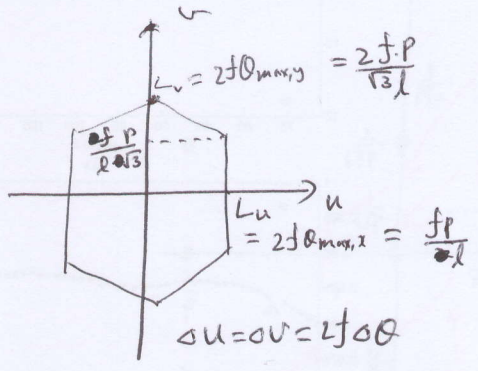 v
L_v = 2fθ_{max,y} = \frac{2f·p}{\sqrt{3} l}
\frac{f p}{l \sqrt{3}}
L_u u
= 2fθ_{max,x} = \frac{fp}{l}
ΔU=ΔV=2fΔθ